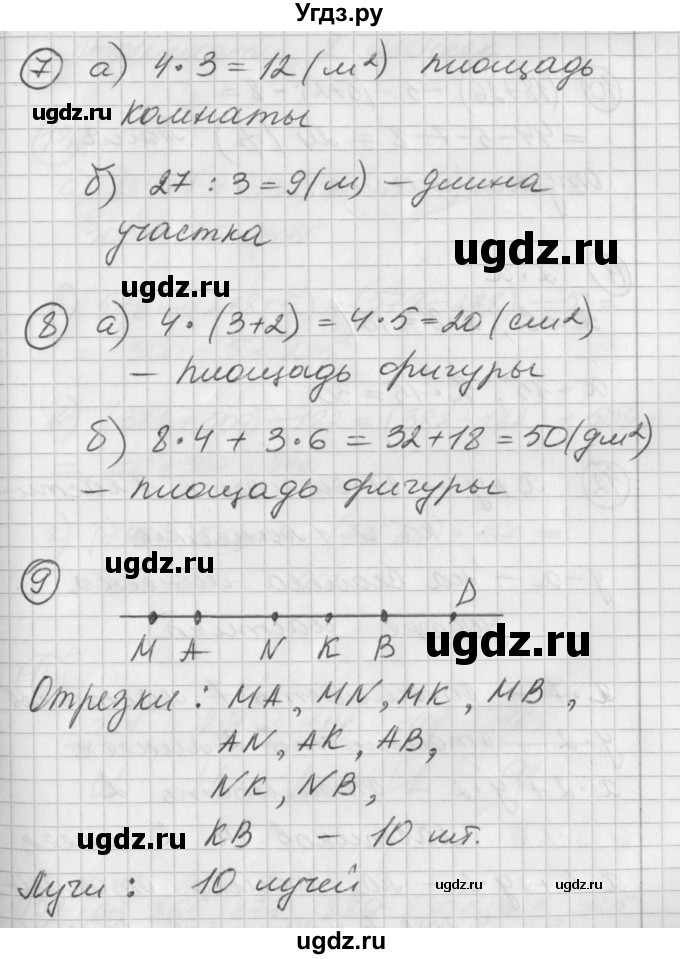 Угдз.ру
7 а) 4 · 3 = 12 (м²) площадь
ugdz.ru комнаты
б) 27 : 3 = 9 (м) – длина
участка
ugdz.ru
ugdz.ru
8 а) 4 · (3+2) = 4 · 5 = 20 (см²)
– площадь фигуры
б) 8 · 4 + 3 · 6 = 32 + 18 = 50 (дм²)
– площадь фигуры
ugdz.ru
9
D
M A N K B
ugdz.ru
Отрезки : MA, MN, MK, MB,
AN, AK, AB,
NK, NB,
ugdz.ru KB – 10 шт.
Лучи : 10 лучей
ugdz.ru ugdz.ru
ugdz.ru
ugdz.ru